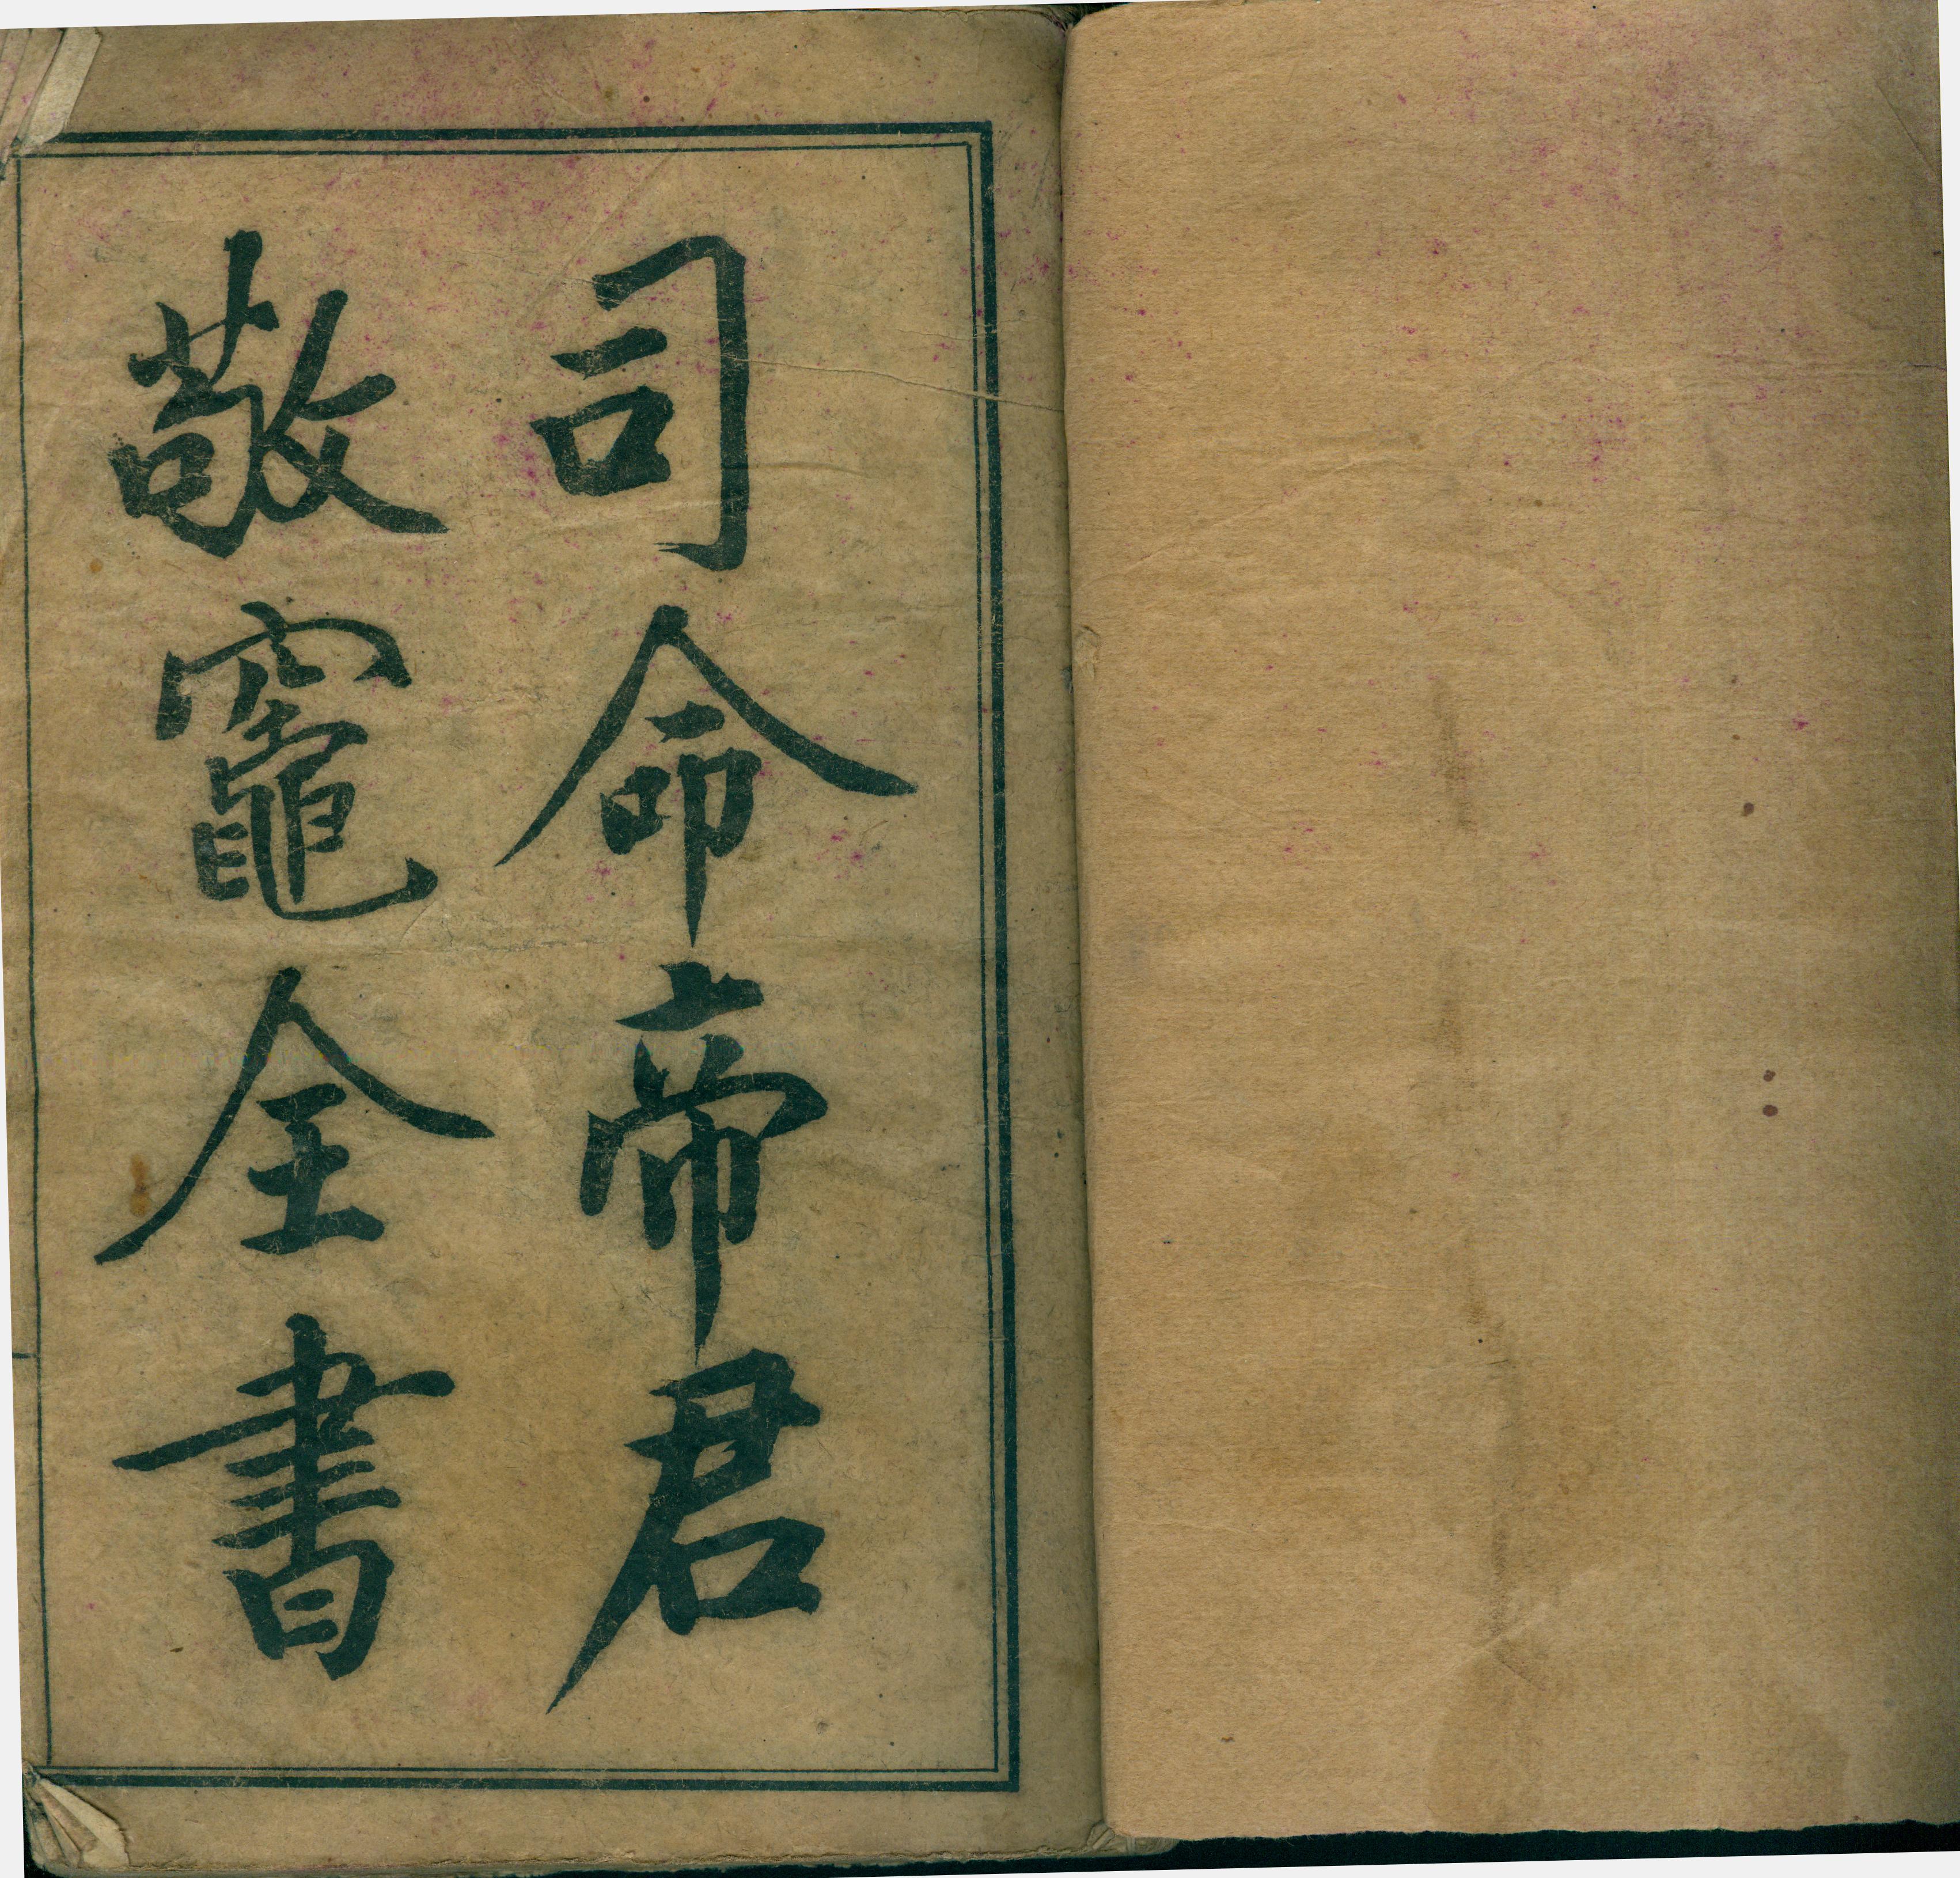 司命帝君
敬竈全書